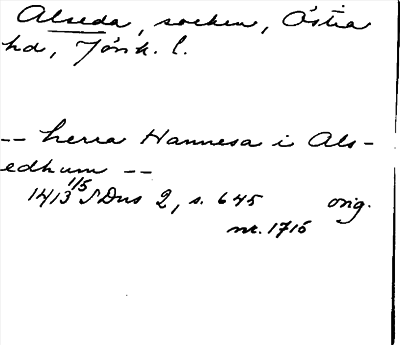 Alseda, socken, Östra
hd, Jönk. l.
-- herra Hannesa i Als-
edhum --
1413 1/5 SDns 2, s. 645 orig.
nr. 1715